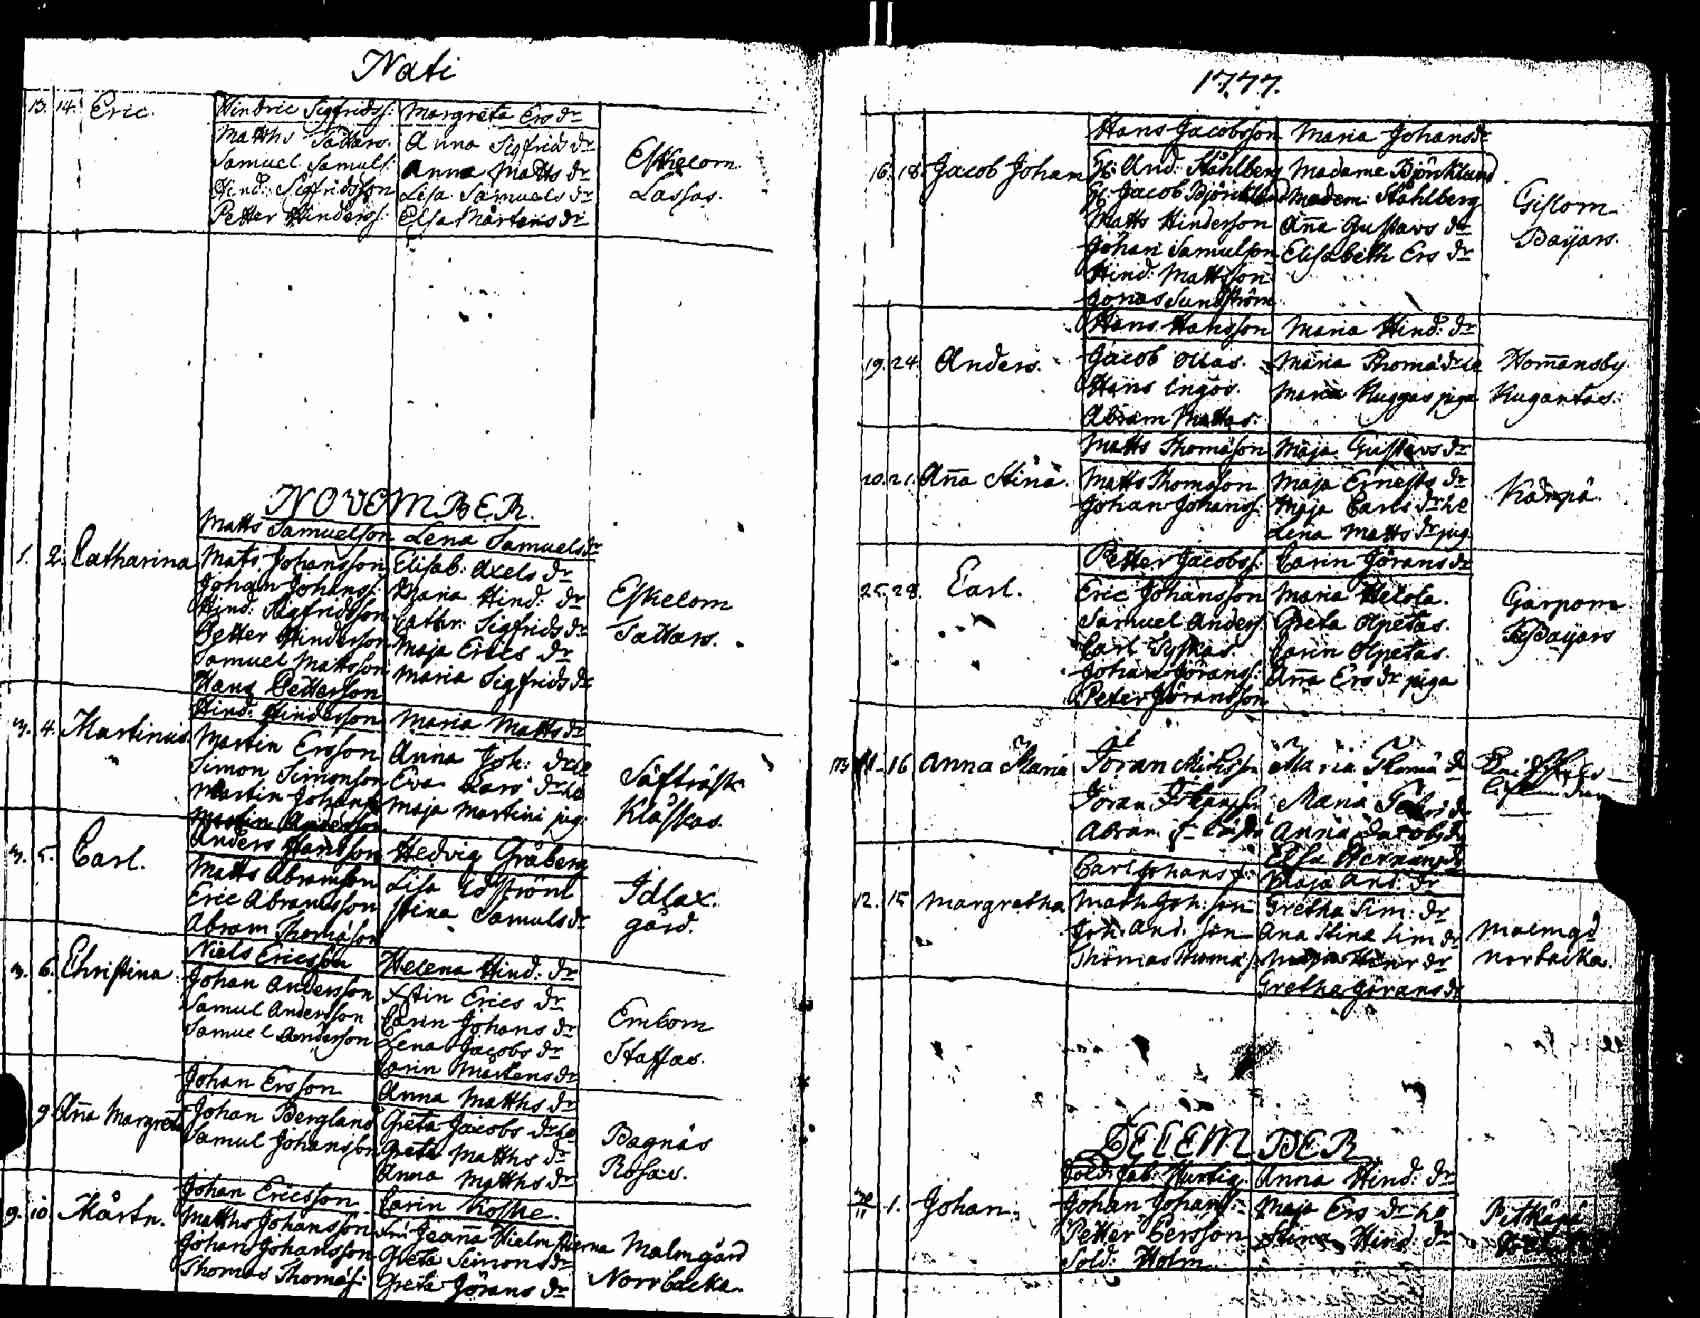 Nati
13. 14. Eric. Hindric Sigfridss: Margreta Ers dr
Matths Sattars. Anna Sigfrids dr
Samuel Samuls: Anna Matts dr Eskelom
Hind: Sigfridsson Lisa Samuels dr Lassas.
Petter Hinderss: Elsa Mårtens dr
NOVEMBER.
Matts Samuelson Lena Samuels dr
1. 2. Catharina Mats Johansson Elisab: Axels dr
Johan Johanss: Maria Hind: dr Eskelom
Hind. Sigfridsson Cathr: Sigfrids dr Sattars.
Petter Hinderson Maja Erics dr
Samuel Mattsson Maria Sigfrids dr
Hans Petterson
Hind: Hindersson Maria Matts dr
3. 4. Martinus. Martin Ersson Anna Joh: dr
Simon Simonson Eva Lars dr Säfträsk
Martin Johans Maja Martini pig. Klåsskas.
Martin Andersson
Anders Hansson Hedvig Gråberg
3. 5. Carl. Matts Abramson Lisa Edström Idlax.
Eric Abramsson Stina Samuls dr gård.
Abram Thomasson
Niels Ericsson Helena Hind: dr
3. 6. Christina. Johan Andersson Xstin Erics dr
Samul Andersson Carin Johans dr Embom
Samuel Andersson Lena Jacobs dr Staffas.
Carin Mårtens dr
Johan Ersson Anna Matths dr
9. Aña Margreta Johan Berglund Greta Jacobs dr
Samul Johansson Greta Matths dr Bagnäs
Anna Matths dr Rosas.
Johan Ericsson Carin Koske.
9. 10. Mårtn. Matths Johansson Jeaña Hielm Malmgård
Johan Johansson Greta Simons dr Norrbacka.
Thomas Thomass: Greta Jörans dr
1777.
Hans Jacobsson Maria Johans dr
16. 18. Jacob Johan Hr. And. Ståhlberg Madame Björklund
Hr. Jacob Björklund Madem: Ståhlberg Gislom
Matts Hinderson Aña Gustavs dr Bayars.
Johan Samulson Elisabeth Ers dr
Hind: Mattsson
Jonas Sundström
Hans Hansson Maria Hind: dr
19. 24. Anders. Jacob Ollas. Maria Thomæ dr Hom̄ansby
Hans Ingos. Maria Kuggas piga Kugantas.
Abram Mattas.
Matts Thomason Maja Gustavs dr
20. 21. Aña Stina. Matts Thomason Maja Ernests dr
Johan Johanss: Maja Carls dr
Lena Matts dr pig.
Petter Jacobss: Carin Jörans dr
25. 28. Carl. Eric Johansson Maria Helola. Garpom
Samuel Anders: Greta Olpetas. Bayars
Carl Tyskas. Carin Olpetas.
Johan Jörans: Aña Ers dr piga
Peter Jöransson
16 Anna Maria Jöran Maria Thomæ dr
Jöran Johansson Maria
Abram Anna Jacobs dr
Elsa Hermans dr
Carl Johans f: Maja And: dr
12. 15 Margretha Math Joh: son Gretha Sim: dr
Joh: And: son Ana Stina Sim dr Malmgd
Thomas Thomas Maja Hinr dr Norbacka.
Gretha Görans dr
DECEMBER.
Sold: Jab: Hurtig Anna Hind: dr
1. Johan. Johan Johans: Maja Ers dr
Petter Persson Stina Hind: dr
Sold: Holm